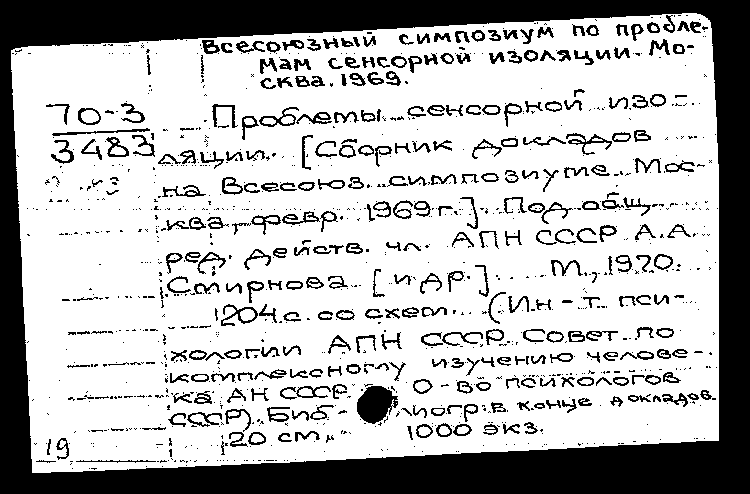 Всесоюзный симпозиум по пробле-
мам сенсорной изоляции. Мо-
сква. 1969.
70-3
3483
Проблемы сенсорной изо-
ляции. [Сборник докладов
на Всесоюз. симпозиуме. Мос-
ква, февр. 1969 г.]. Под общ.
ред. действ. чл. АПН СССР А.А.
Смирнова [и др.]. М., 1970.
204 с. со схем. (Ин-т пси-
хологии АПН СССР. Совет по
комплексному изучению челове-
ка АН СССР. О-во психологов
СССР). Биб-лиогр: в конце докладов.
20 см. 1000 экз.
19